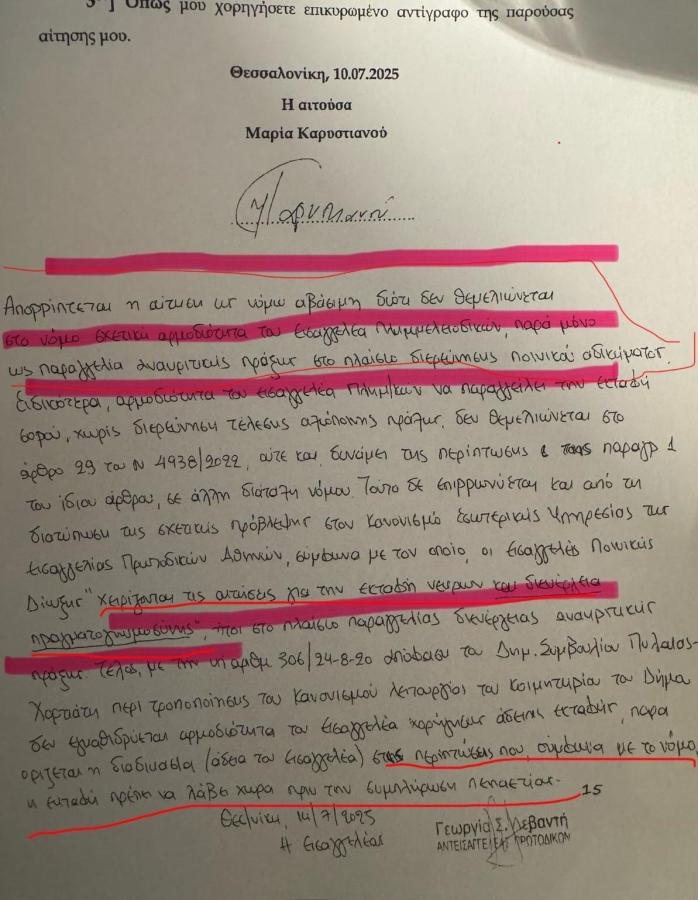 3 ] Όπως μου χορηγήσετε επικυρωμένο αντίγραφο της παρούσας
αίτησης μου.
Θεσσαλονίκη, 10.07.2025
Η αιτούσα
Μαρία Καρυστιανού
Απορρίπτεται η αίτηση ως νόμω αβάσιμη διότι δεν θεμελιώνεται
στο νόμο σχετική αρμοδιότητα του Εισαγγελέα Πλημμελειοδικών, παρά μόνο
ως παραγγελία ανακριτικής πράξης στο πλαίσιο διερεύνησης ποινικού αδικήματος.
Ειδικότερα, αρμοδιότητα του εισαγγελέα Πλημ/κων να παραγγείλει την εκταφή
σορού, χωρίς διερεύνηση τέλεσης αξιόποινης πράξης, δεν θεμελιώνεται στο
άρθρο 29 του Ν 4938/2022, ούτε και δυνάμει της περίπτωσης της παραγρ 1
του ίδιου άρθρου, σε άλλη διάταξη νόμου. Τούτο δε επιρρωνύεται και από τη
διατύπωση της σχετικής πρόβλεψης στον Κανονισμό Εσωτερικής Υπηρεσίας της
Εισαγγελίας Πρωτοδικών Αθηνών, σύμφωνα με τον οποίο, οι Εισαγγελείς Ποινικής
Δίωξης "χειρίζονται τις αιτήσεις για την εκταφή νεκρών και διενέργεια
πραγματογνωμοσύνης", ήτοι στο πλαίσιο παραγγελίας διενέργειας ανακριτικής
πράξης. Τέλος, με την υπ αριθμ 306/24-8-20 απόφαση του Δημ. Συμβουλίου Πυλαίας-
Χορτιάτη περί τροποποίησης του Κανονισμού λειτουργίας του Κοιμητηρίου του Δήμου
δεν εγκαθιδρύεται αρμοδιότητα του Εισαγγελέα χορήγησης άδειας εκταφής, παρά
ορίζεται η διαδικασία (άδεια του Εισαγγελέα) στις περιπτώσεις που, σύμφωνα με το νόμο,
η εκταφή πρέπει να λάβει χώρα πριν την συμπλήρωση πενταετίας.
15
Θεσ/νίκη, 14/7/2025
Η Εισαγγελέας
Γεωργία Σ. Δεβαντή
ΑΝΤΕΙΣΑΓΓΕΛΕΑΣ ΠΡΩΤΟΔΙΚΩΝ